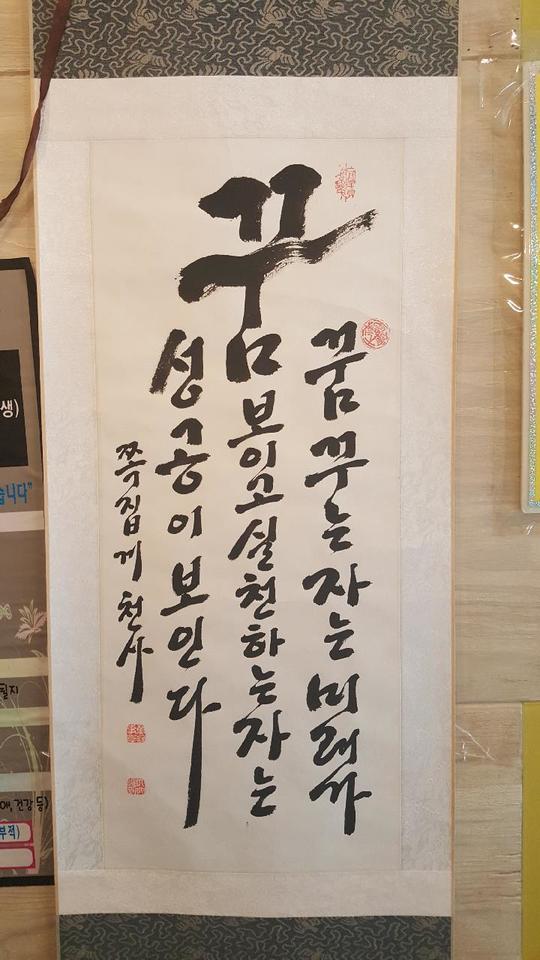 꿈
꿈꾸는자는미래가
보이고실천하는자는
성공이보인다
쪽집게천사
생)
습니다"
필지
애,건강 등)
부적)